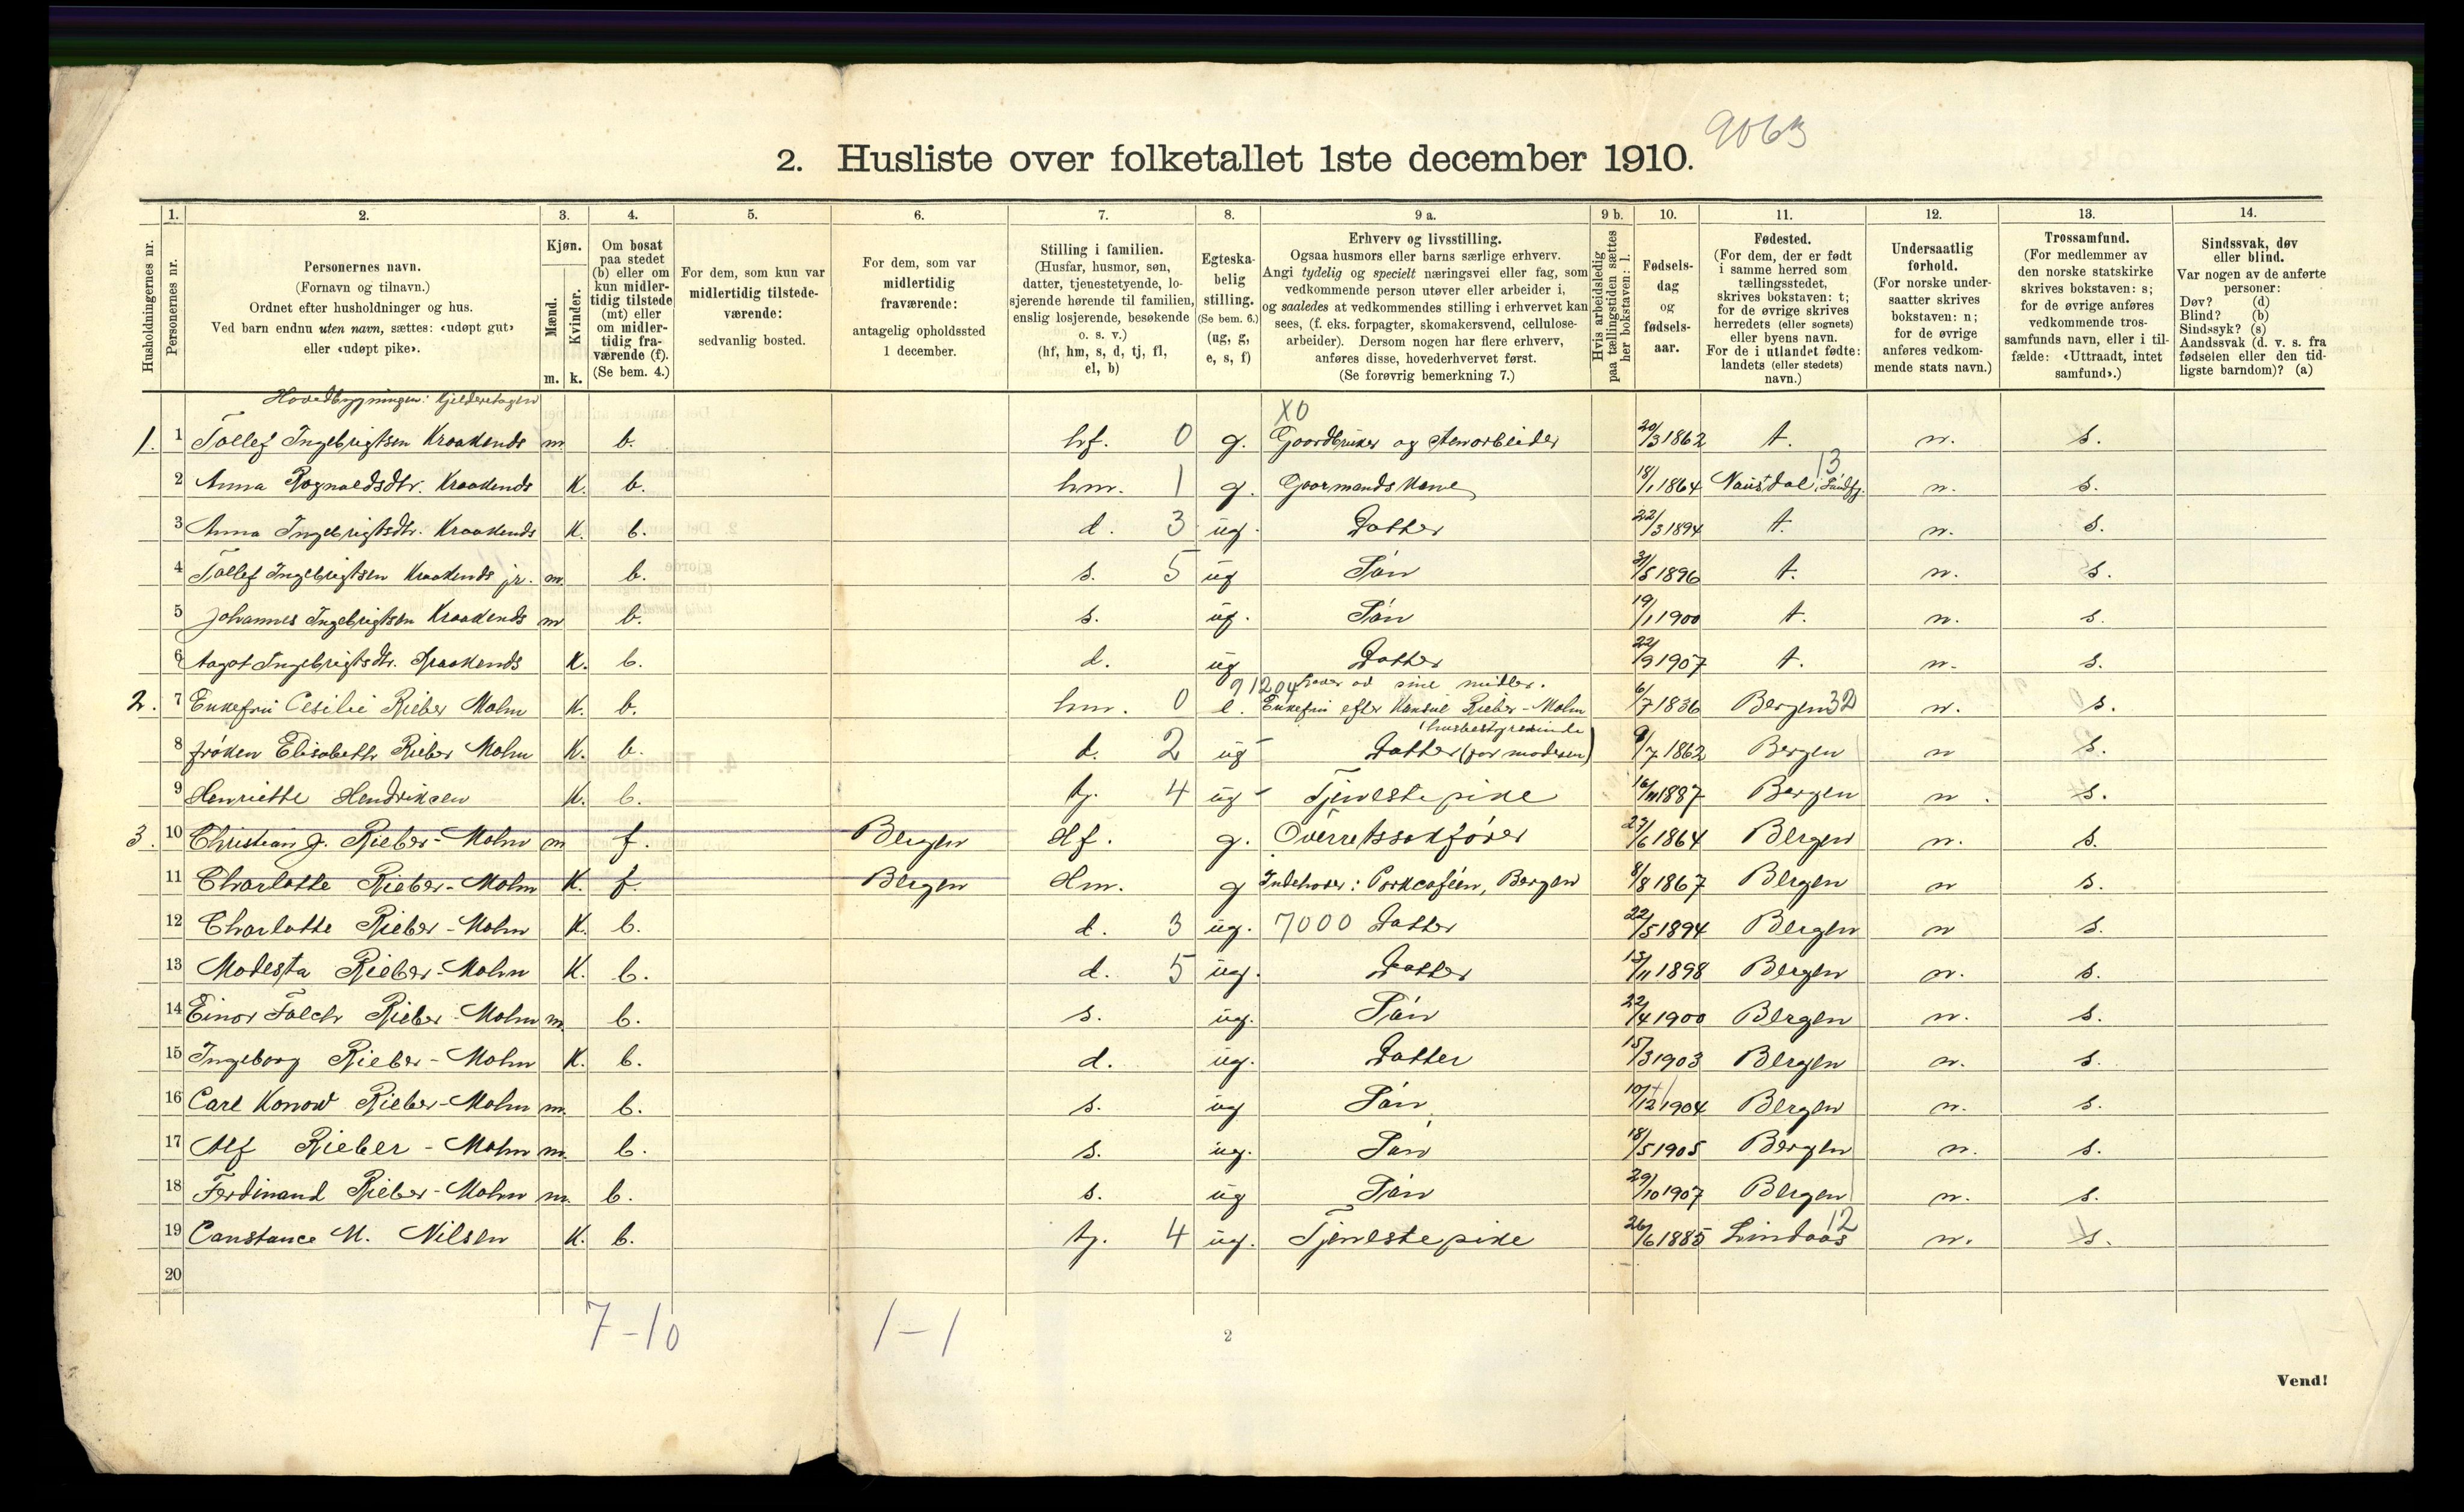 9063
2. Husliste over folketallet 1ste december 1910.
Husholdningernes nr.
1.
Personernes nr.
2.
Personernes navn.
(Fornavn og tilnavn.)
Ordnet efter husholdninger og hus.
Ved barn endnu uten navn, sættes: «udøpt gut»
eller «udøpt pike».
3.
Kjøn.
Mænd.
Kvinder.
m. k.
4.
Om bosat
paa stedet
(b) eller om
kun midler-
tidig tilstede
(mt) eller
om midler-
tidig fra-
værende (f).
(Se bem. 4.)
5.
For dem, som kun var
midlertidig tilstede-
værende:
sedvanlig bosted.
6.
For dem, som var
midlertidig
fraværende:
antagelig opholdssted
1 december.
7.
Stilling i familien.
(Husfar, husmor, søn,
datter, tjenestetyende, lo-
sjerende hørende til familien,
enslig losjerende, besøkende
o. s. v.)
(hf, hm, s, d, tj, fl,
el, b)
8.
Egteska-
belig
stilling.
(Se bem. 6.)
(ug, g,
e, s, f)
9 a.
Erhverv og livsstilling.
Ogsaa husmors eller barns særlige erhverv.
Angi tydelig og specielt næringsvei eller fag, som
vedkommende person utøver eller arbeider i,
og saaledes at vedkommendes stilling i erhvervet kan
sees, (f. eks. forpagter, skomakersvend, cellulose-
arbeider). Dersom nogen har flere erhverv,
anføres disse, hovederhvervet først.
(Se forøvrig bemerkning 7.)
9 b.
Hvis arbeidsledig
paa tællingstiden sættes
her bokstaven: l.
10.
Fødsels-
dag
og
fødsels-
aar.
11.
Fødested.
(For dem, der er født
i samme herred som
tællingsstedet,
skrives bokstaven: t;
for de øvrige skrives
herredets (eller sognets)
eller byens navn.
For de i utlandet fødte:
landets (eller stedets)
navn.)
12.
Undersaatlig
forhold.
(For norske under-
saatter skrives
bokstaven: n;
for de øvrige
anføres vedkom-
mende stats navn.)
13.
Trossamfund.
(For medlemmer av
den norske statskirke
skrives bokstaven: s;
for de øvrige anføres
vedkommende tros-
samfunds navn, eller i til-
fælde: «Uttraadt, intet
samfund».)
14.
Sindssvak, døv
eller blind.
Var nogen av de anførte
personer:
Døv? (d)
Blind? (b)
Sindssyk? (s)
Aandssvak (d. v. s. fra
fødselen eller den tid-
ligste barndom)? (a)
Hovedbygningen: Kjelderetagen
X0
1. 1 Tollef Ingebrigtsen Kraakenes m. b. hf. 0 g. Gaardbruker og Stenarbeider 20/3 1862 t. n. s.
2 Anna Ragnaldsdtr. Kraakenes K. b. hm. 1 g. Gaarmandskone 18/1 1864 Naustdal i Søndfj. 13 n. s.
3 Anna Ingebrigtsdtr. Kraakenes K. b. d. 3 ug. Datter 22/3 1894 t. n. s.
4 Tollef Ingebrigtsen Kraakenes jr. m. b. s. 5 ug Søn 31/5 1896 t. n. s.
5 Johannes Ingebrigtsen Kraakenes m b. s. ug. Søn 19/1 1900 t. n. s.
6 Aagot Ingebrigtsdtr. Kraakenes K. b. d. ug Datter 22/9 1907 t. n. s.
91204 Lever av sine midler.
2. 7 Enkefrú Cesilie Rieber Mohn K. b. hm. 0 e. Enkefrú efter Konsul Rieber-Mohn 6/7 1836 Bergen 32 n. s.
(husbestyrerinde
8 frøken Elisabeth Rieber Mohn K. b. d. 2 ug Datter (for moderen) 9/7 1862 Bergen n s.
9 Henriette Hendriksen K. b. tj. 4 ug Tjenestepike 16/11 1887 Bergen n. s.
3. 10 Christian J. Rieber-Mohn m f. Bergen Hf. g. Overretssakfører 27/6 1864 Bergen n. s.
11 Charlotte Rieber-Mohn K. f. Bergen Hm. g Indehaver: Parkcaféen, Bergen 8/8 1867 Bergen n s.
12 Charlotte Rieber-Mohn K. b. d. 3 ug. 7000 Datter 22/5 1894 Bergen n s.
13 Modesta Rieber-Mohn K. b. d. 5 ug. Datter 13/11 1898 Bergen n. s.
14 Einar Falch Rieber-Mohn m. b. s. ug. Søn 22/4 1900 Bergen n. s.
15 Ingeborg Rieber-Mohn K. b. d. ug. Datter 15/3 1903 Bergen n. s.
16 Carl Konow Rieber-Mohn m. b. s. ug Søn 10/12 1904 Bergen n. s.
17 Alf Rieber-Mohn m. b. s. ug. Søn 18/5 1905 Bergen n. s.
18 Ferdinand Rieber-Mohn m. b. s. ug Søn 29/10 1907 Bergen n. s.
19 Constance M. Nilsen K. b. tj. 4 ug. Tjenestepike 26/6 1885 Lindaas 12 n. s.
20
7-10 1-1
2
Vend!